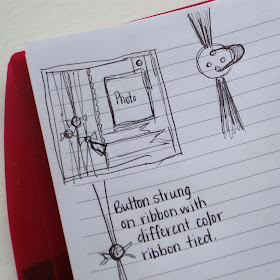 Photo
Button strung
on ribbon with
different color
ribbon tied.